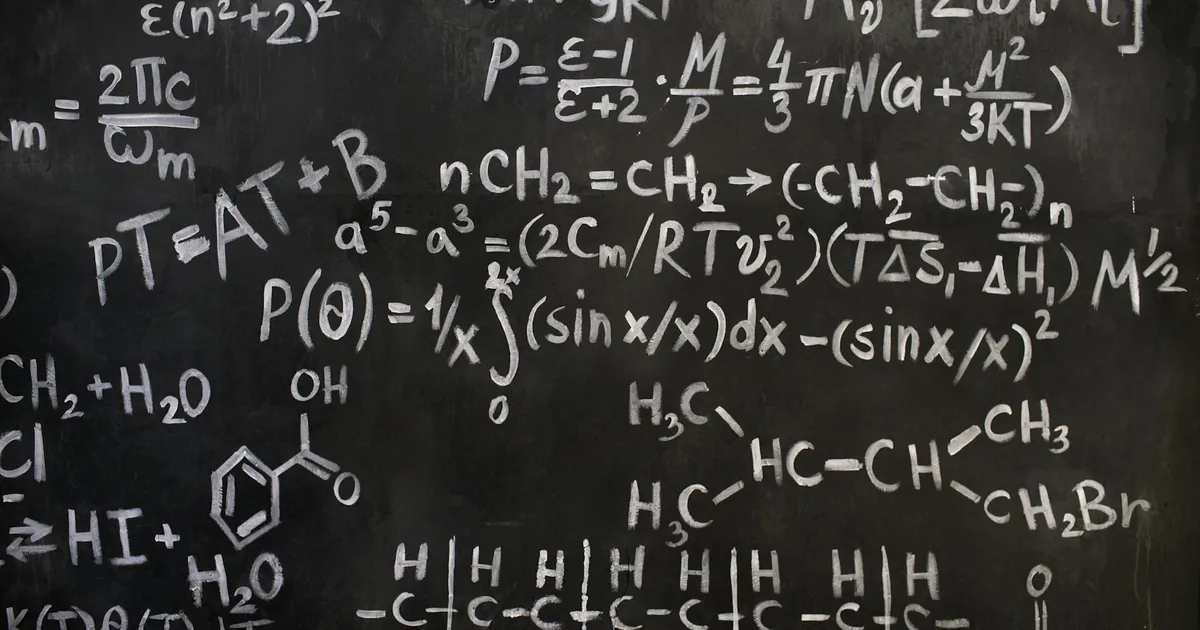 ε(n²+2)²
m = 2πc/ωm
P = (ε-1)/(ε+2) · M/P = 4/3 πN(a + M²/3KT)
PT=AT+B
nCH₂=CH₂→(-CH₂-CH₂-)n
a⁵-a³=(2Cm/RTv₂²)(TΔS₁-ΔH₁)M^½
P(θ)=1/x ∫₀²ˣ(sin x/x)dx-(sinx/x)²
CH₂+H₂O
Cl
OH
O
⇄HI+
H₂O
H₃C
CH₃
HC-CH
H₃C
CH₂Br
H H H H H H H H
-C-C-C-C-C-C-C-C-
O